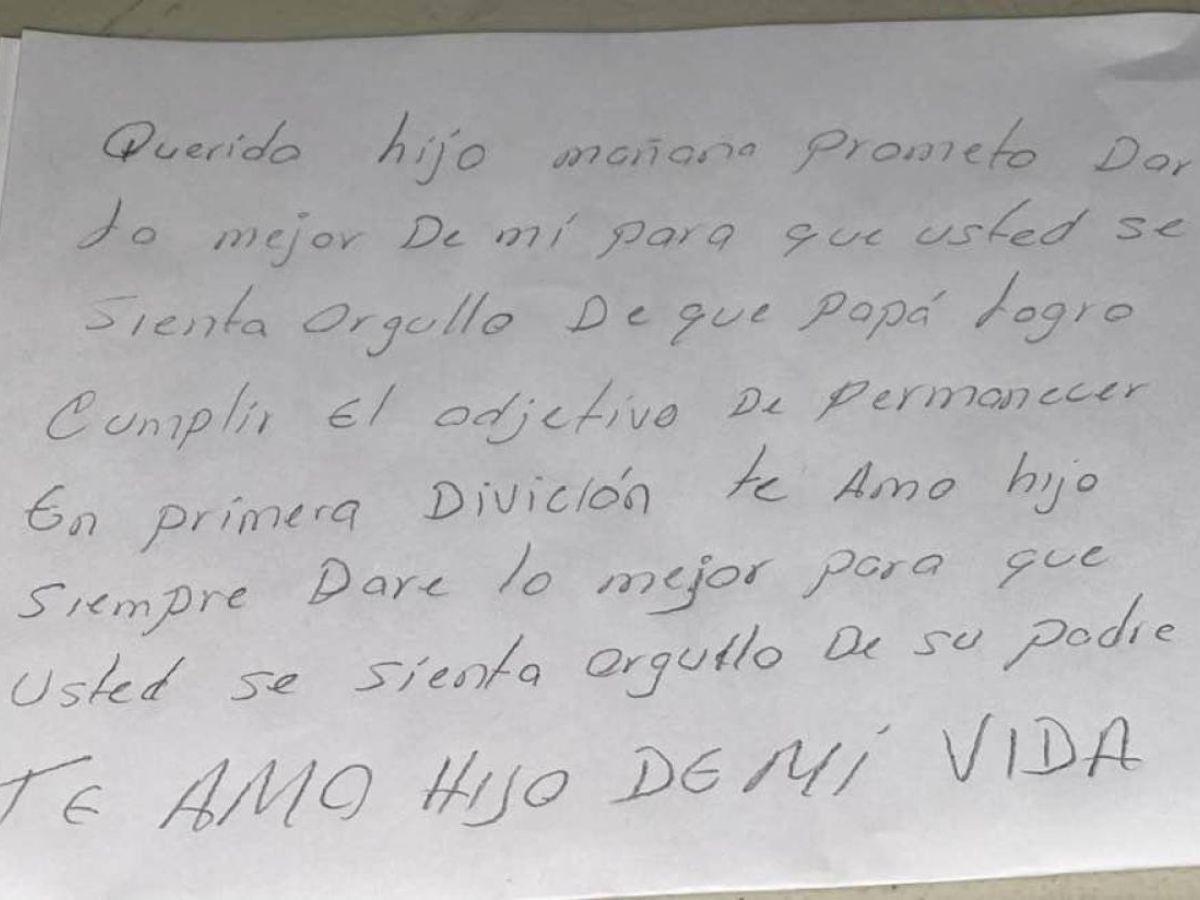 Querido hijo mañana Prometo Dar
Lo mejor De mí para que usted se
Sienta Orgullo De que Papá Logro
Cumplir El odjetivo De Permanecer
En primera Divición te Amo hijo
Siempre Dare lo mejor para que
Usted se sienta orgullo De su padre
TE AMO HIJO DE MÍ VIDA